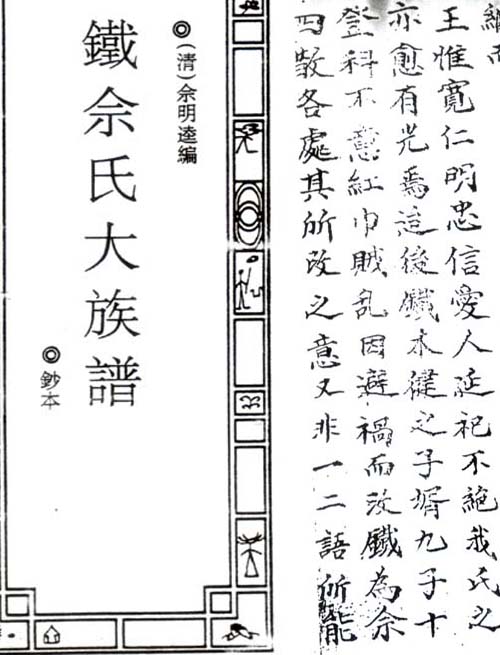 王惟寬仁明忠信愛人延祀不絶我氏之
亦愈有光焉這後鐵木健之子壻九子十
登科不意紅巾賊乱因避禍而改鐵為佘
四散各處其所改之意又非一二語所能
◎(清)佘明逵編
鐵佘氏大族譜
◎鈔本